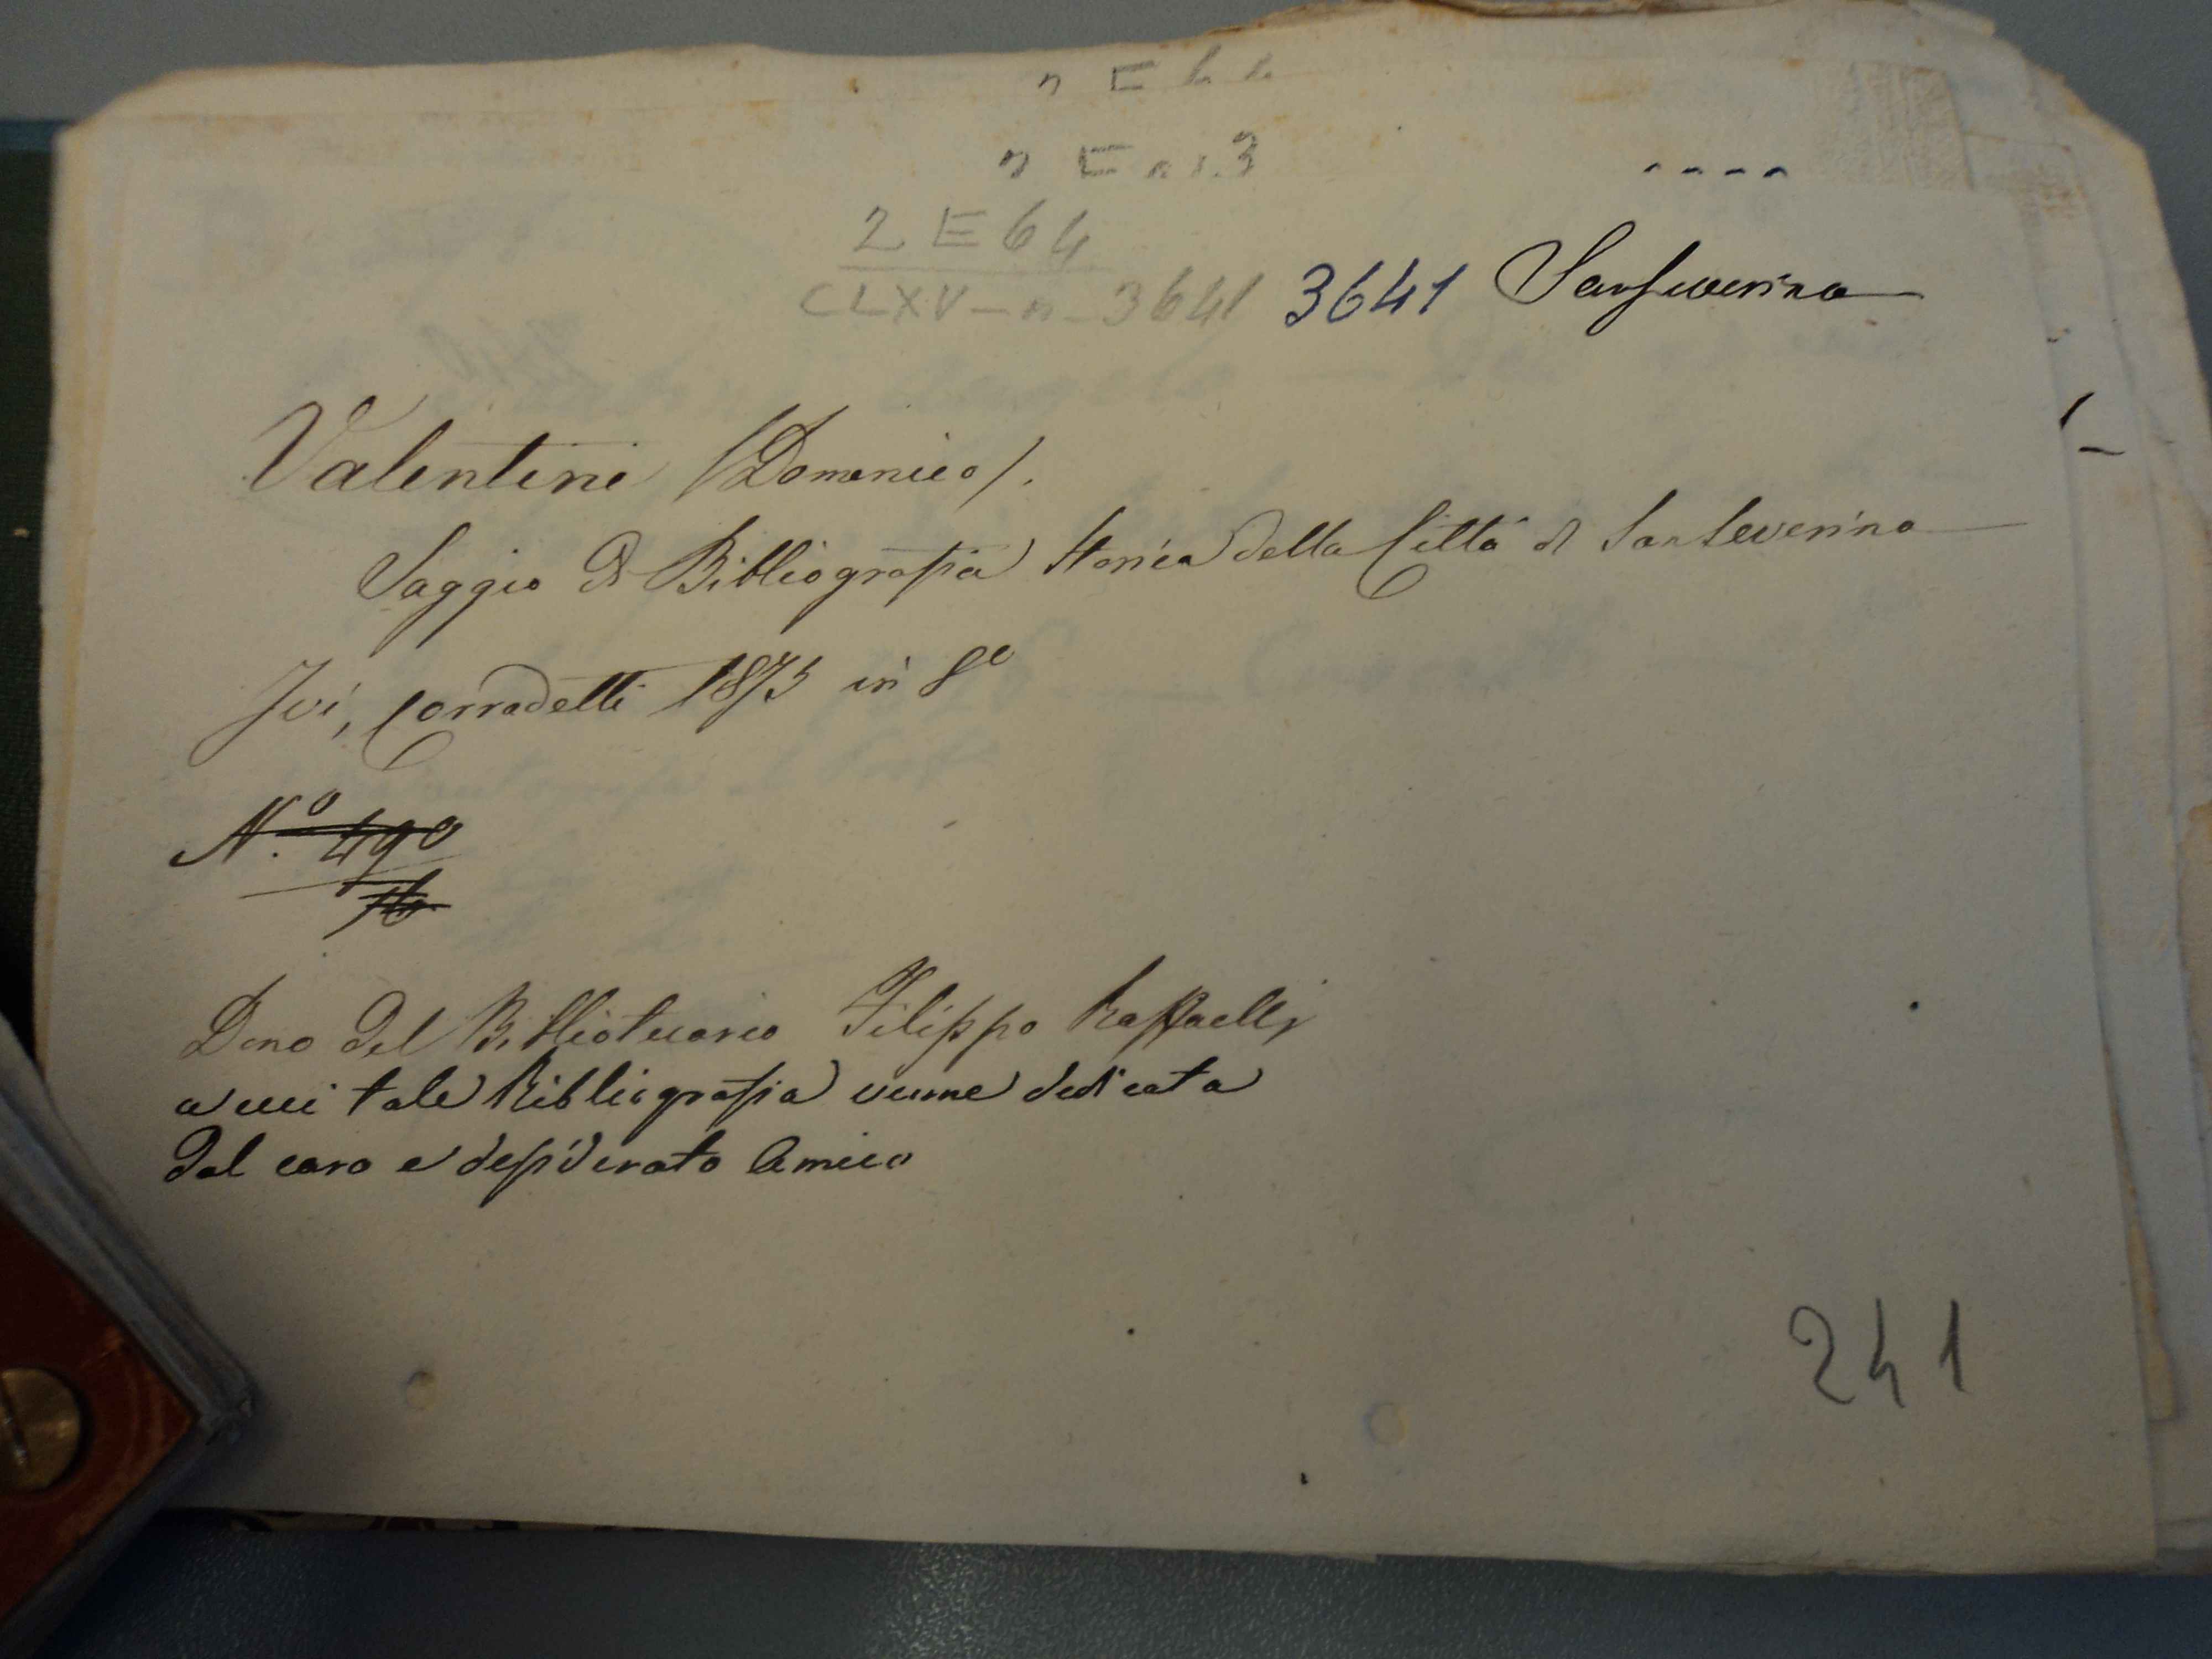 2 E 64
CLXV - n - 3641 3641 Sanseverino
Valentini (Domenico).
Saggio di Bibliografia Storica della Città di Sanseverino
Ivi, Corradetti 1873 in 8º
N.º 490
Dono del Bibliotecario Filippo Raffaelli
a cui tale Bibliografia venne dedicata
dal caro e desiderato Amico
241